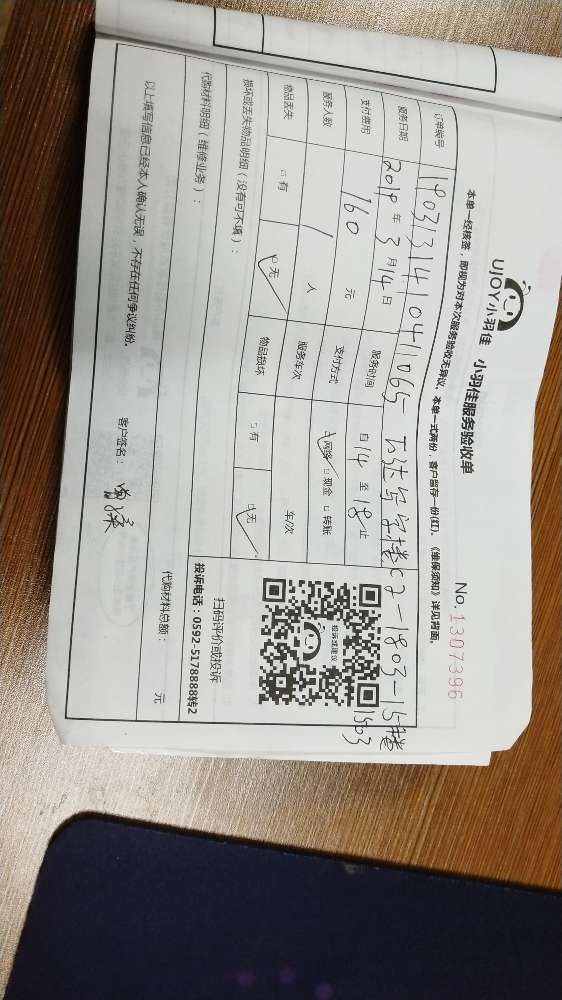 UJOY小羽佳 小羽佳服务验收单
No. 1307396
本单一经核签，即视为对本次服务验收无异议。本单一式两份，客户留存一份(红)。《维保须知》详见背面。
订单编号 1903131410411065 万达写字楼C2-1803-15楼
1503
服务日期 2019 年 3 月 14 日 服务时间 自 14 至 18 止
支付费用 160 元 支付方式 网络 现金 转账
服务人数 1 人 服务车次 车/次
物品丢失 有 无 物品损坏 有 无
投诉或建议
扫码评价或投诉
投诉电话：0592-5178888转2
损坏或丢失物品明细（没有可不填）：
代购材料明细（维修业务）：
代购材料总额： 元
以上填写信息已经本人确认无误，不存在任何争议纠纷。 客户签名：